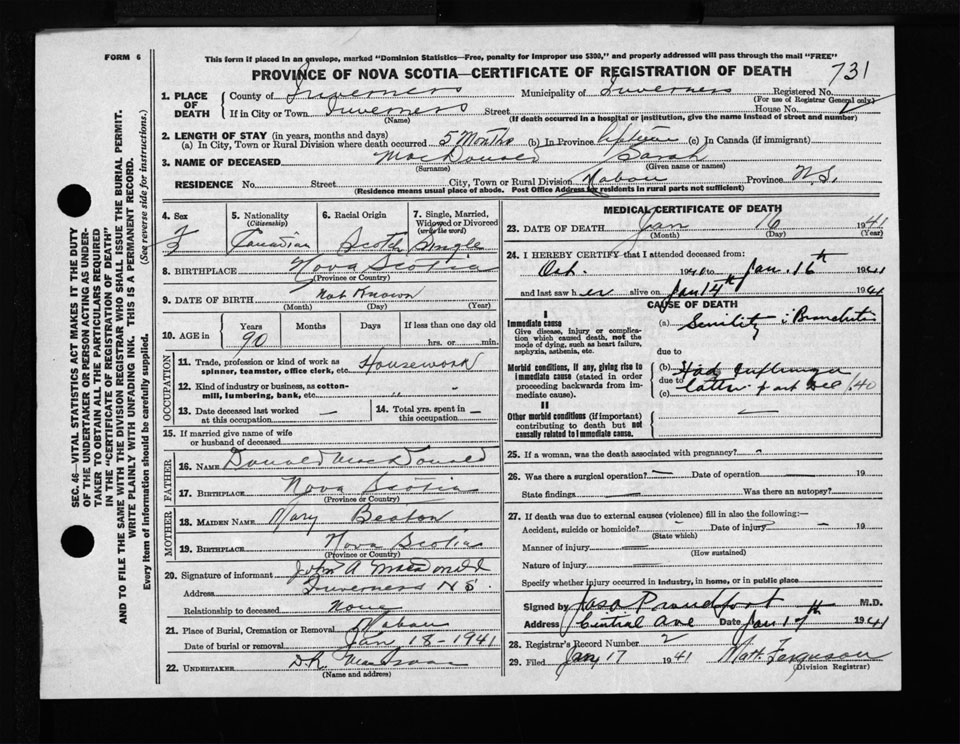 FORM 6
This form if placed in an envelope, marked "Dominion Statistics—Free, penalty for improper use $300," and properly addressed will pass through the mail "FREE"
PROVINCE OF NOVA SCOTIA—CERTIFICATE OF REGISTRATION OF DEATH 731
1. PLACE OF DEATH County of Inverness Municipality of Inverness Registered No.
(For use of Registrar General only)
If in City or Town Inverness Street House No.
(Name) (If death occurred in a hospital or institution, give the name instead of street and number)
2. LENGTH OF STAY (in years, months and days)
(a) In City, Town or Rural Division where death occurred 5 Months (b) In Province lifetime (c) In Canada (if immigrant)
3. NAME OF DECEASED MacDonald Sarah
(Surname) (Given name or names)
RESIDENCE No. Street City, Town or Rural Division Mabou Province N.S.
(Residence means usual place of abode. Post Office Address for residents in rural parts not sufficient)
4. Sex F
5. Nationality (Citizenship) Canadian
6. Racial Origin Scotch
7. Single, Married, Widowed or Divorced (write the word) Single
8. BIRTHPLACE Nova Scotia
(Province or Country)
9. DATE OF BIRTH Not Known
(Month) (Day) (Year)
10. AGE in Years Months Days If less than one day old
90 hrs. or min.
OCCUPATION
11. Trade, profession or kind of work as spinner, teamster, office clerk, etc. Housework
12. Kind of industry or business, as cotton-mill, lumbering, bank, etc. "
13. Date deceased last worked at this occupation —
14. Total yrs. spent in this occupation —
15. If married give name of wife or husband of deceased
FATHER
16. NAME Donald MacDonald
17. BIRTHPLACE Nova Scotia
(Province or Country)
MOTHER
18. MAIDEN NAME Mary Beaton
19. BIRTHPLACE Nova Scotia
(Province or Country)
20. Signature of informant John A MacDonald
Address Inverness N S.
Relationship to deceased None
21. Place of Burial, Cremation or Removal Mabou
Date of burial or removal Jan 18-1941
22. UNDERTAKER D.R. MacIsaac
(Name and address)
MEDICAL CERTIFICATE OF DEATH
23. DATE OF DEATH Jan 16 1941
(Month) (Day) (Year)
24. I HEREBY CERTIFY that I attended deceased from:
Oct. 1940 to Jan. 16th 1941
and last saw her alive on Jan 14th 1941
CAUSE OF DEATH
I
Immediate cause
Give disease, injury or complication which caused death, not the mode of dying, such as heart failure, asphyxia, asthenia, etc.
(a) Senility
due to
Morbid conditions, if any, giving rise to immediate cause (stated in order proceeding backwards from immediate cause).
(b) Had Influenza
due to latter part Dec/40
(c)
II
Other morbid conditions (if important) contributing to death but not causally related to immediate cause. —
25. If a woman, was the death associated with pregnancy? -
26. Was there a surgical operation? — Date of operation 19
State findings Was there an autopsy?
27. If death was due to external causes (violence) fill in also the following:—
Accident, suicide or homicide? Date of injury 19
(State which)
Manner of injury
(How sustained)
Nature of injury
Specify whether injury occurred in industry, in home, or in public place
Signed by Jas A Proudfoot M.D.
Address Central Ave Date Jan 17th 1941
28. Registrar's Record Number 2
29. Filed Jany 17 1941 Matt. Ferguson
(Division Registrar)
SEC. 46—VITAL STATISTICS ACT MAKES IT THE DUTY
OF THE UNDERTAKER OR PERSON ACTING AS UNDER-
TAKER TO OBTAIN ALL THE PARTICULARS REQUIRED
IN THE "CERTIFICATE OF REGISTRATION OF DEATH"
AND TO FILE THE SAME WITH THE DIVISION REGISTRAR WHO SHALL ISSUE THE BURIAL PERMIT.
WRITE PLAINLY WITH UNFADING INK. THIS IS A PERMANENT RECORD.
Every item of information should be carefully supplied. (See reverse side for instructions.)